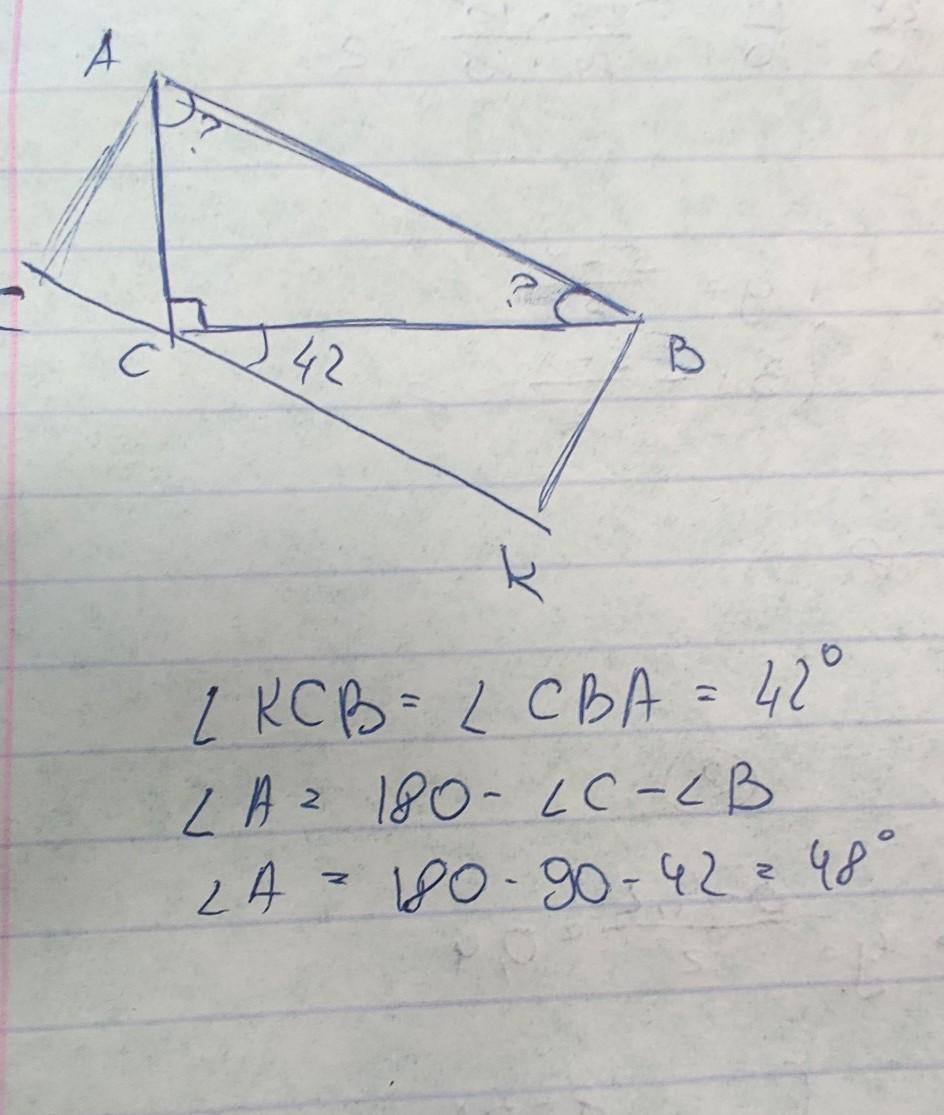 A
?
?
C
42
B
K
∠KCB = ∠CBA = 42°
∠A = 180 - ∠C - ∠B
∠A = 180 - 90 - 42 = 48°